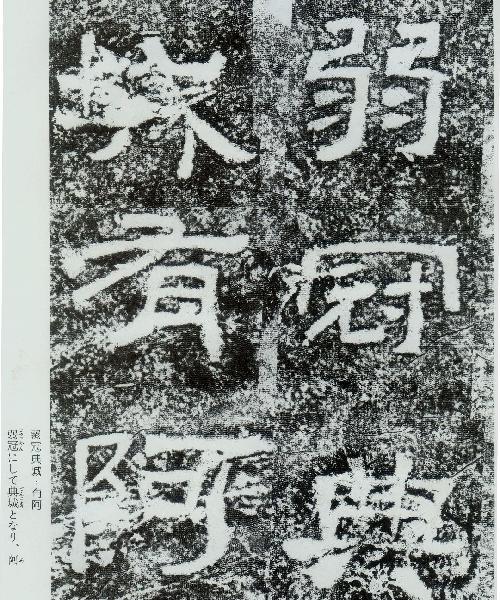 弱冠典
城有阿
弱冠典城。有阿
弱冠にして典城となり、阿